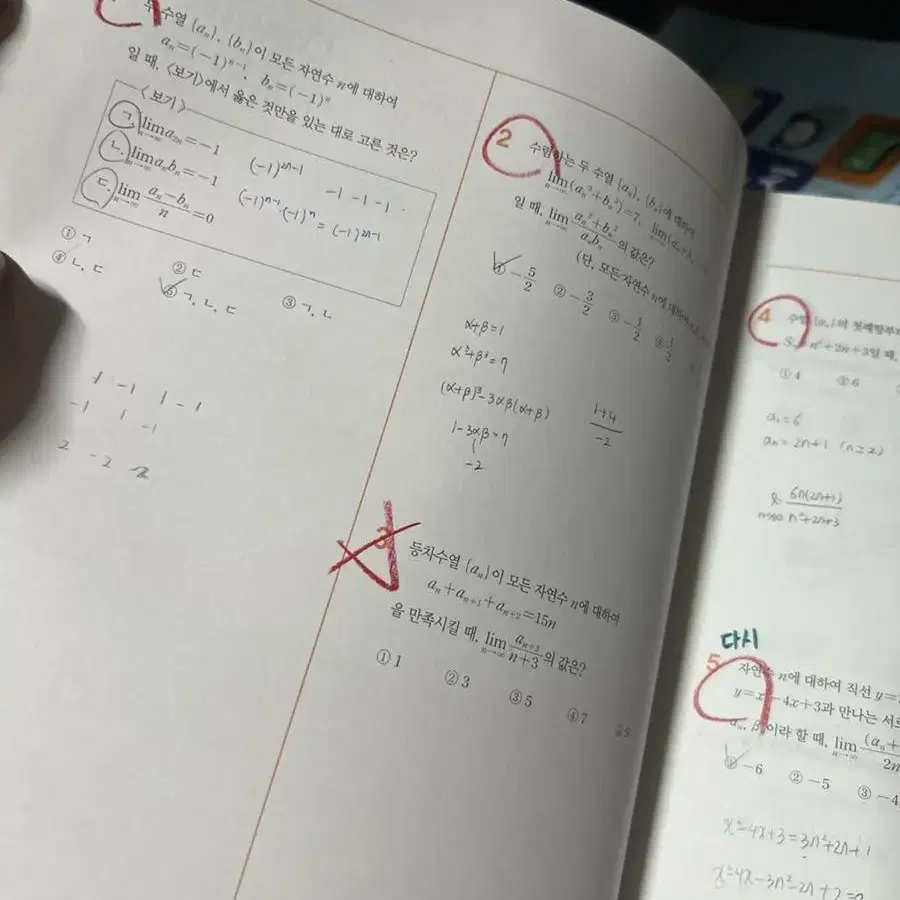 두 수열 {aₙ}, {bₙ}이 모든 자연수 n에 대하여
aₙ=(-1)ⁿ⁻¹, bₙ=(-1)ⁿ
일 때, <보기>에서 옳은 것만을 있는 대로 고른 것은?
<보기>
ㄱ. lim a₂ₙ=-1
n→∞
(-1)²ⁿ⁻¹
-1 -1 -1
ㄴ. lim aₙbₙ=-1
n→∞
(-1)ⁿ⁻¹·(-1)ⁿ = (-1)²ⁿ⁻¹
ㄷ. lim (aₙ-bₙ)/n=0
n→∞
① ㄱ ② ㄷ ③ ㄱ, ㄴ
④ ㄴ, ㄷ ⑤ ㄱ, ㄴ, ㄷ
1 -1 1 -1
-1 1 -1
2 -2 2
2
수렴하는 두 수열 {aₙ}, {bₙ}에 대하여
lim(aₙ³+bₙ³)=7, lim(aₙ+b
n→∞
일 때, lim (aₙ²+bₙ²)/(aₙbₙ)의 값은?
n→∞
(단, 모든 자연수 n에 대하여
① -5/2 ② -3/2 ③ -1/2 ④ 1/2
α+β=1
α³+β³=7
(α+β)³-3αβ(α+β)
1-3αβ=7
-2
(1+4)/-2
3
등차수열 {aₙ}이 모든 자연수 n에 대하여
aₙ+aₙ₊₁+aₙ₊₂=15n
을 만족시킬 때, lim aₙ₊₃/(n+3)의 값은?
n→∞
① 1 ② 3 ③ 5 ④ 7 ⑤ 9
4
수열 {aₙ}의 첫째항부
Sₙ=n²+2n+3일 때,
① 4 ② 6
a₁=6
aₙ=2n+1 (n≥2)
6n(2n+1)/(n²+2n+3)
n→∞
다시
5
자연수 n에 대하여 직선 y=
y=x²-4x+3과 만나는 서로
aₙ, βₙ이라 할 때, lim (aₙ+ /2n
n→∞
① -6 ② -5 ③ -4
x²-4x+3=3n²+2n+1
x²-4x-3n²-2n+2=0